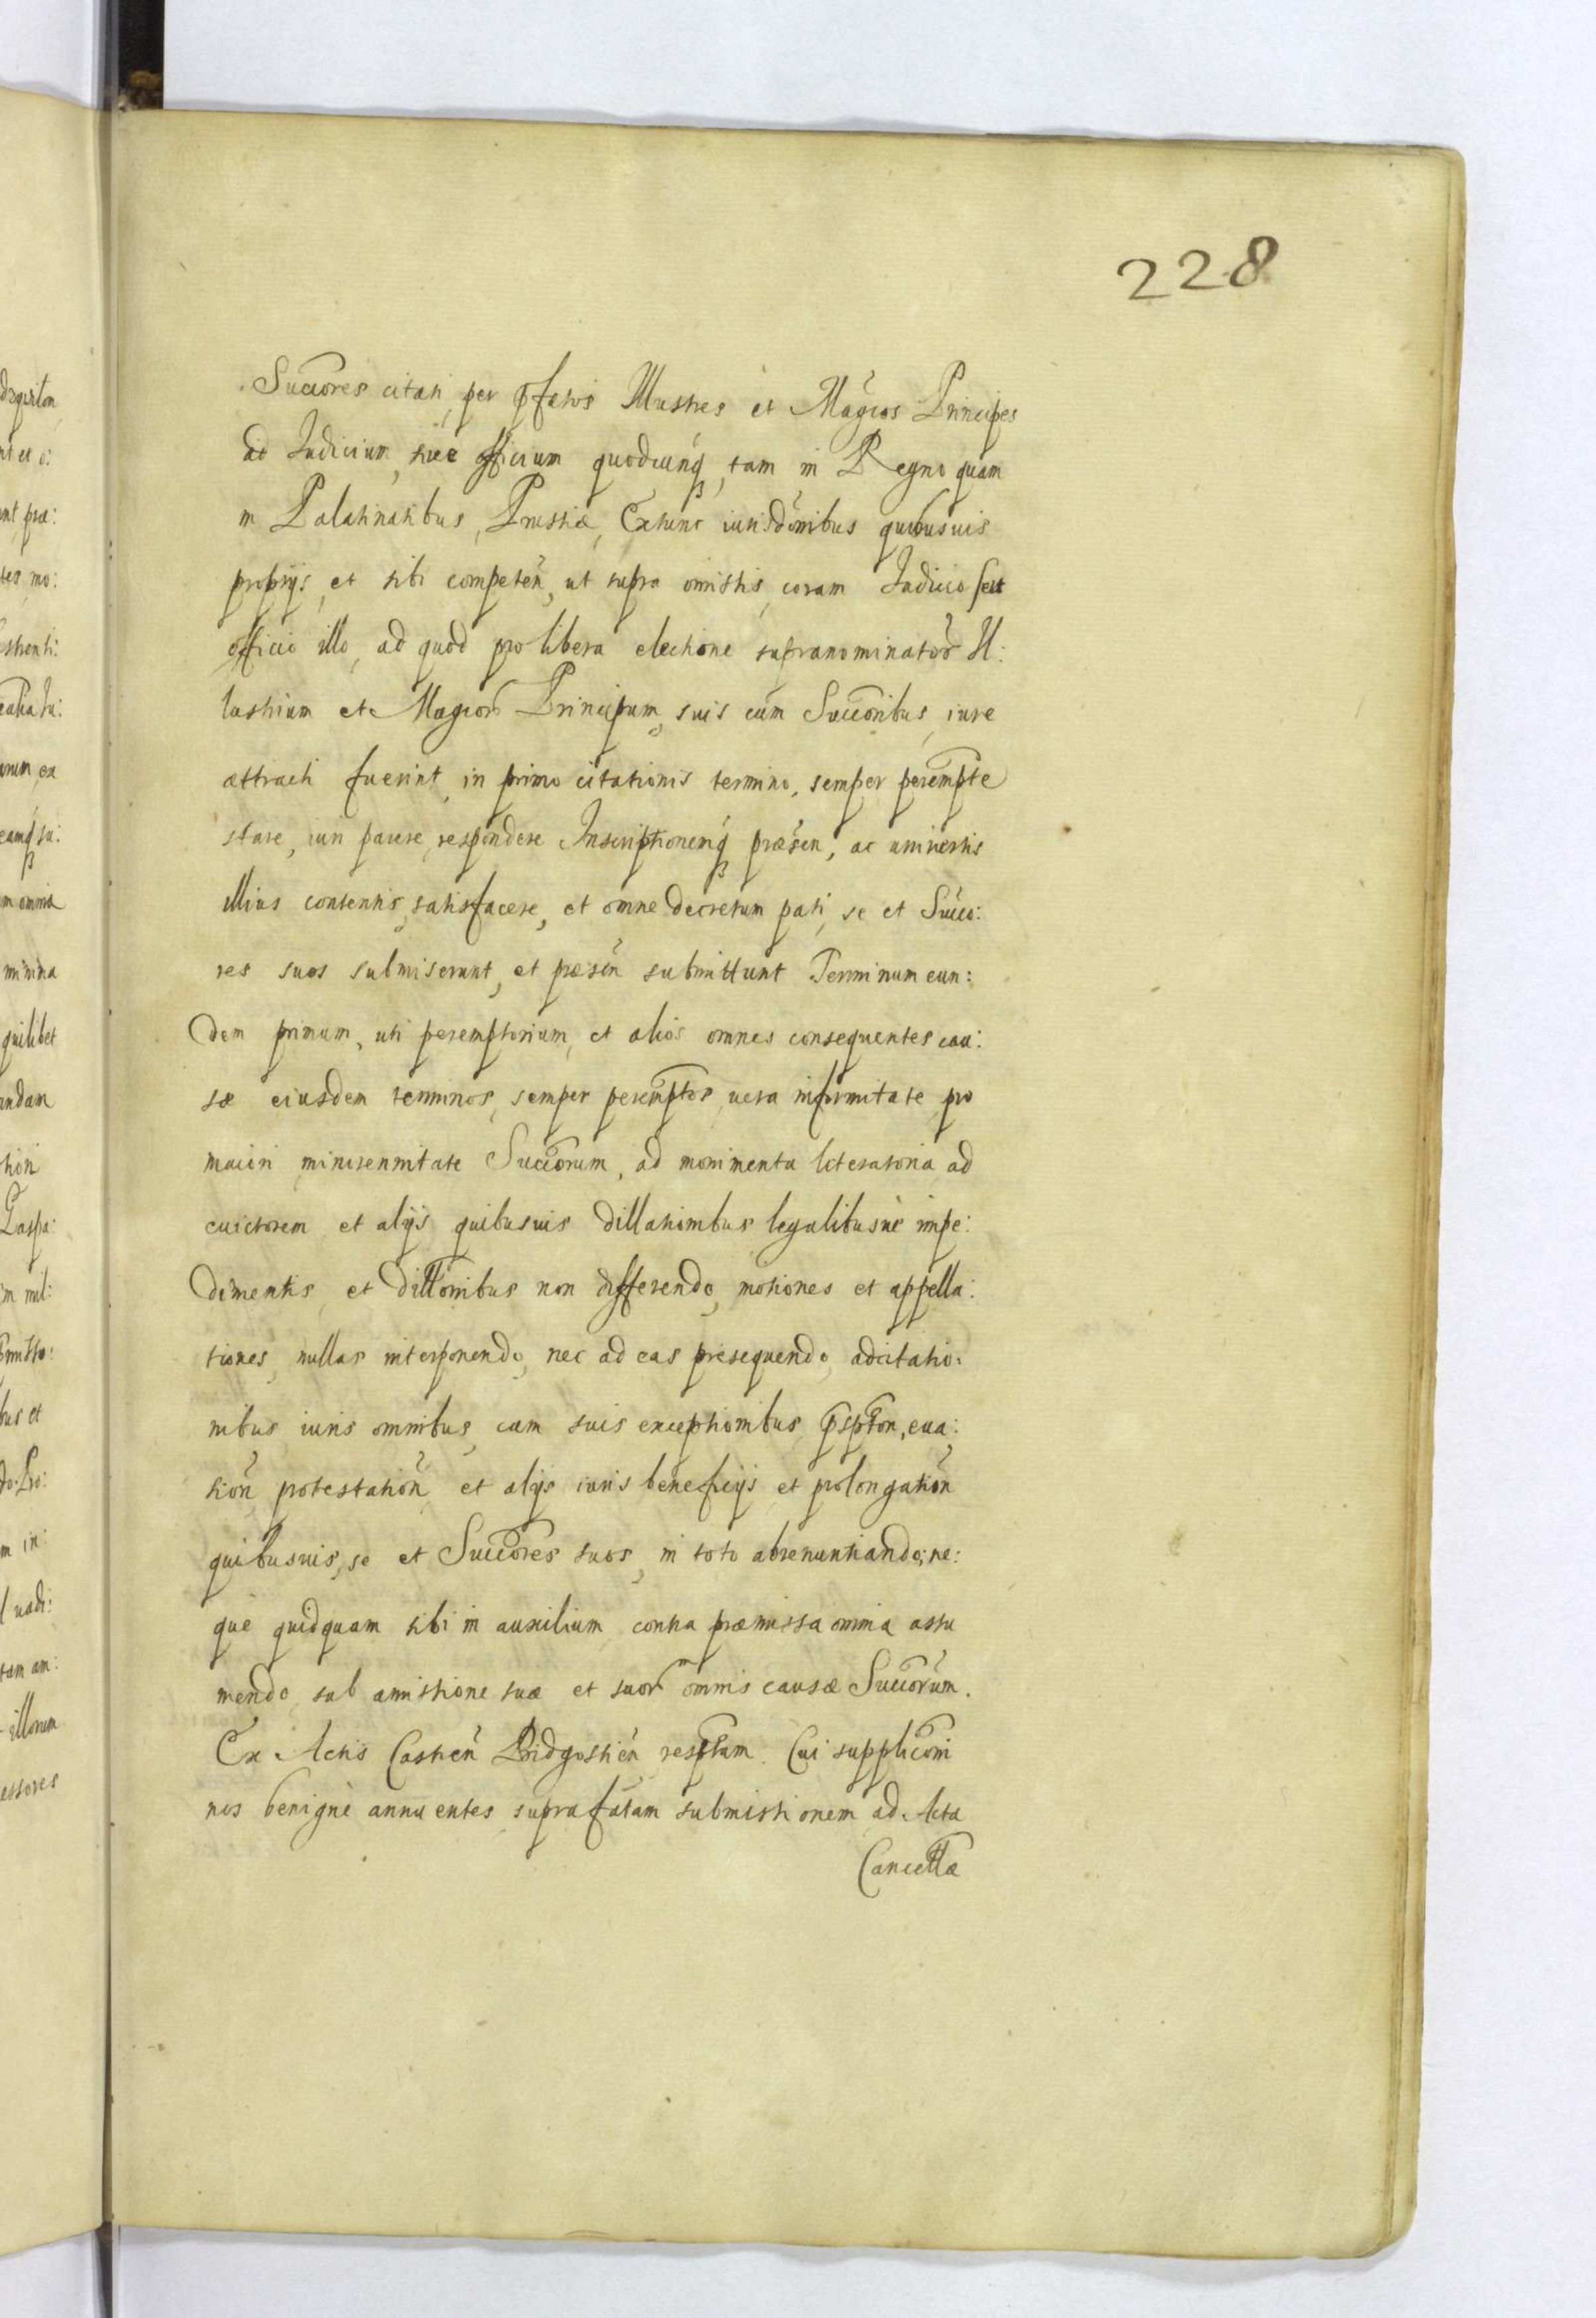 228
Succores citati, per pfatos Illustres et Magcos Principes
ad Iudicium, siue officium quodcunq, tam in Regno quam
in Palatinatibus, Prussiæ, Extunc iurisdonibus quibusuis
proprijs, et sibi competen, ut supra omissis, coram Iudicio seu
officio illo, ad quod pro libera electione supranominator Il:
lustrium et Magcor Principum, suis cum Succoribus, iure
attracti fuerint, in primo citationis termino, semper perempte
stare, iuri parere, respondere Inscriptioneng præsen, ac universis
illius contentis, satisfacere, et omne decretum pati, se et Succo:
res suos submiserunt, et præsen submittunt Terminum eun:
dem primum, uti peremptorium, et alios omnes consequentes cau:
sæ eiusdem terminos, semper peremptos, uera infirmitate, pro
maiori, minorennitate Succorum, ad monimenta literatoria, ad
euictorem et alijs quibusuis dillationibus legalibusue impe:
dimentis, et dillonibus non differendo, motiones et appella:
tiones, nullas interponendo, nec ad eas prosequendo, adcitatio:
nibus iuris omnibus, cum suis exceptionibus, pspton, eua:
sion protestation et alijs iuris beneficijs et prolongation
quibusuis, se et Succores suos, in toto abrenuntiando, ne:
que quidquam sibi in auxilium contra præmissa omnia assu
mendo, sub amissione suæ et suor omnis causæ Succorum.
Ex Actis Castren Bidgostien resptum. Cui suppliconi
nos benignè annuentes, suprafatam submissionem ad Acta
Cancellæ